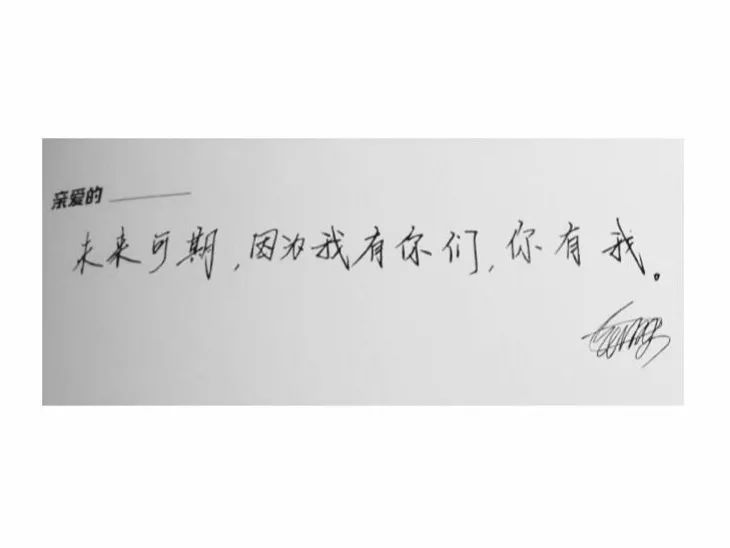 亲爱的
未来可期,因为我有你们,你有我。